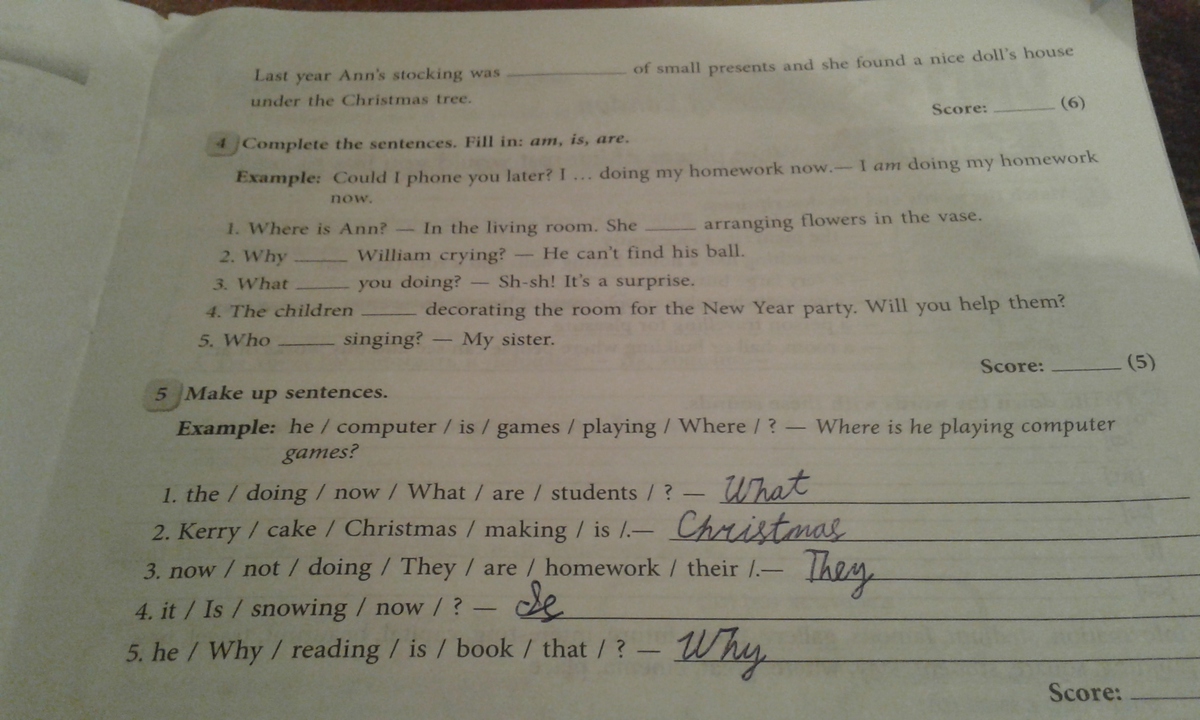 Last year Ann's stocking was ____________ of small presents and she found a nice doll's house
under the Christmas tree.
Score: ______ (6)
4 Complete the sentences. Fill in: am, is, are.
Example: Could I phone you later? I ... doing my homework now.— I am doing my homework
now.
1. Where is Ann? — In the living room. She _____ arranging flowers in the vase.
2. Why _____ William crying? — He can't find his ball.
3. What _____ you doing? — Sh-sh! It's a surprise.
4. The children _____ decorating the room for the New Year party. Will you help them?
5. Who _____ singing? — My sister.
Score: ______ (5)
5 Make up sentences.
Example: he / computer / is / games / playing / Where / ? — Where is he playing computer
games?
1. the / doing / now / What / are / students / ? — What
2. Kerry / cake / Christmas / making / is /.— Christmas
3. now / not / doing / They / are / homework / their /.— They
4. it / Is / snowing / now / ? —
5. he / Why / reading / is / book / that / ? — Why
Score: ______